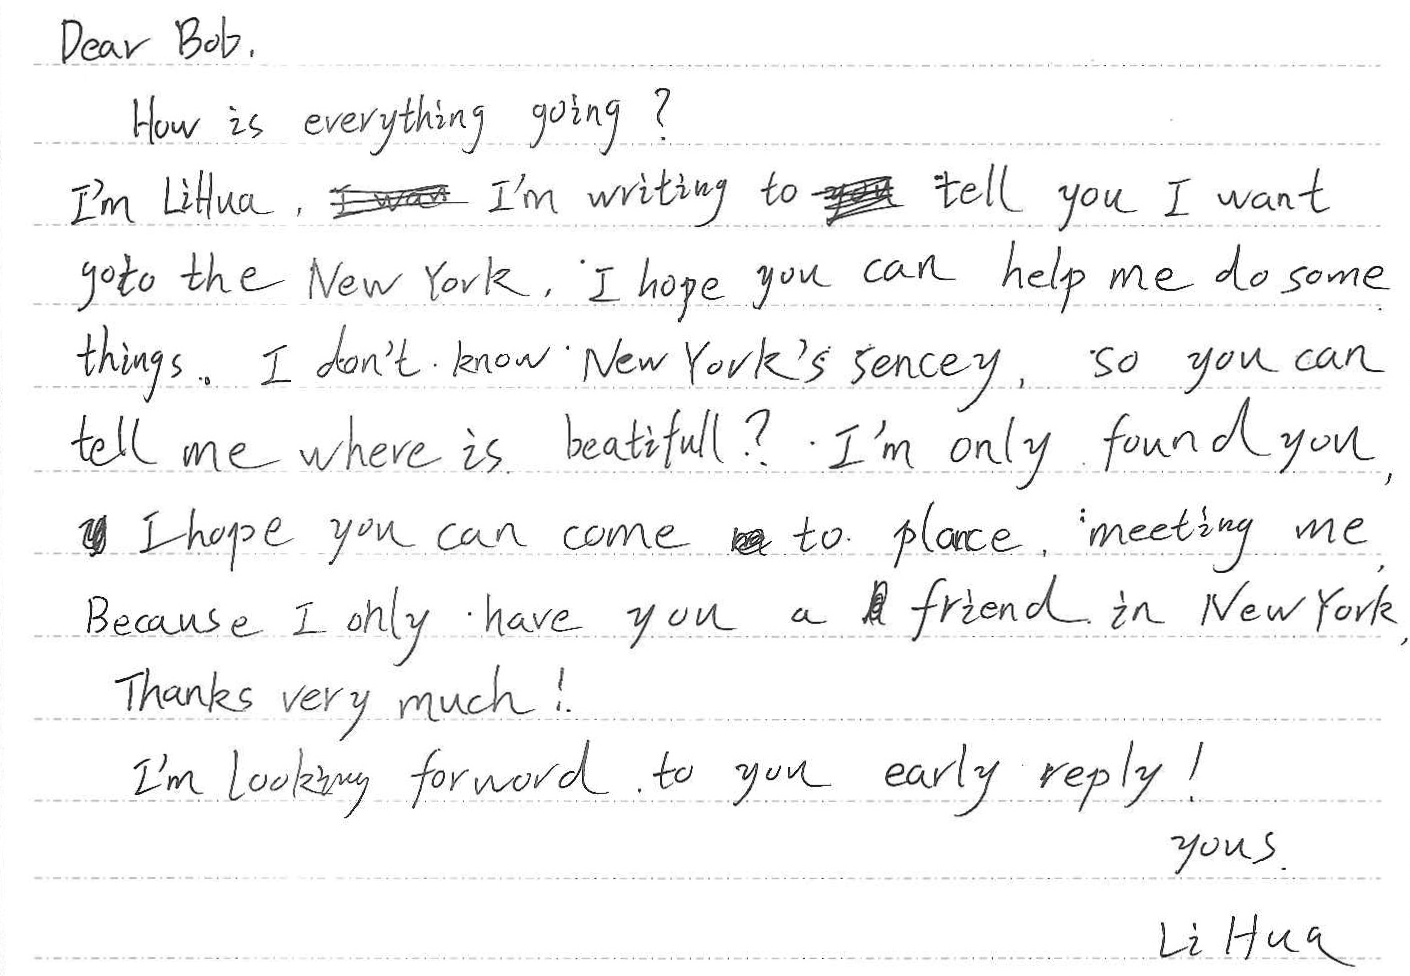 Dear Bob.
How is everything going?
I'm LiHua, I'm writing to tell you I want
goto the New York. I hope you can help me do some
things. I don't know New York's sencey, so you can
tell me where is beatifull? I'm only found you,
I hope you can come to plance, meeting me,
Because I only have you a friend in New York,
Thanks very much!
I'm looking forword to you early reply!
yous.
Li Hua